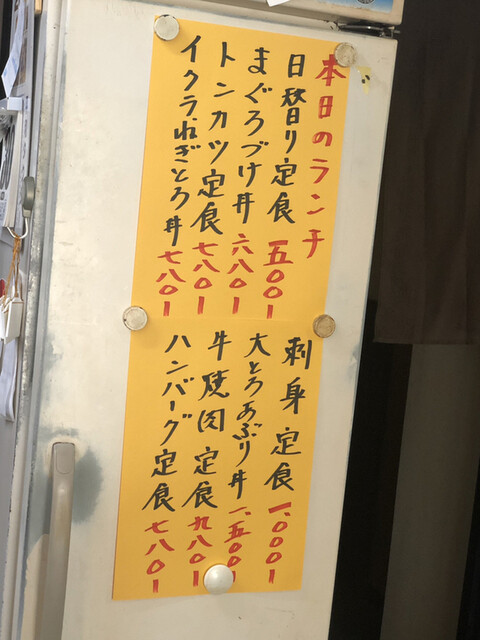 本日のランチ
日替り定食 五〇〇ー
まぐろづけ丼 六八〇ー
トンカツ定食 七八〇ー
イクラねぎとろ丼 七八〇ー
刺身定食 一、〇〇〇ー
大とろあぶり丼 一、五〇〇ー
牛焼肉定食 九八〇ー
ハンバーグ定食 七八〇ー